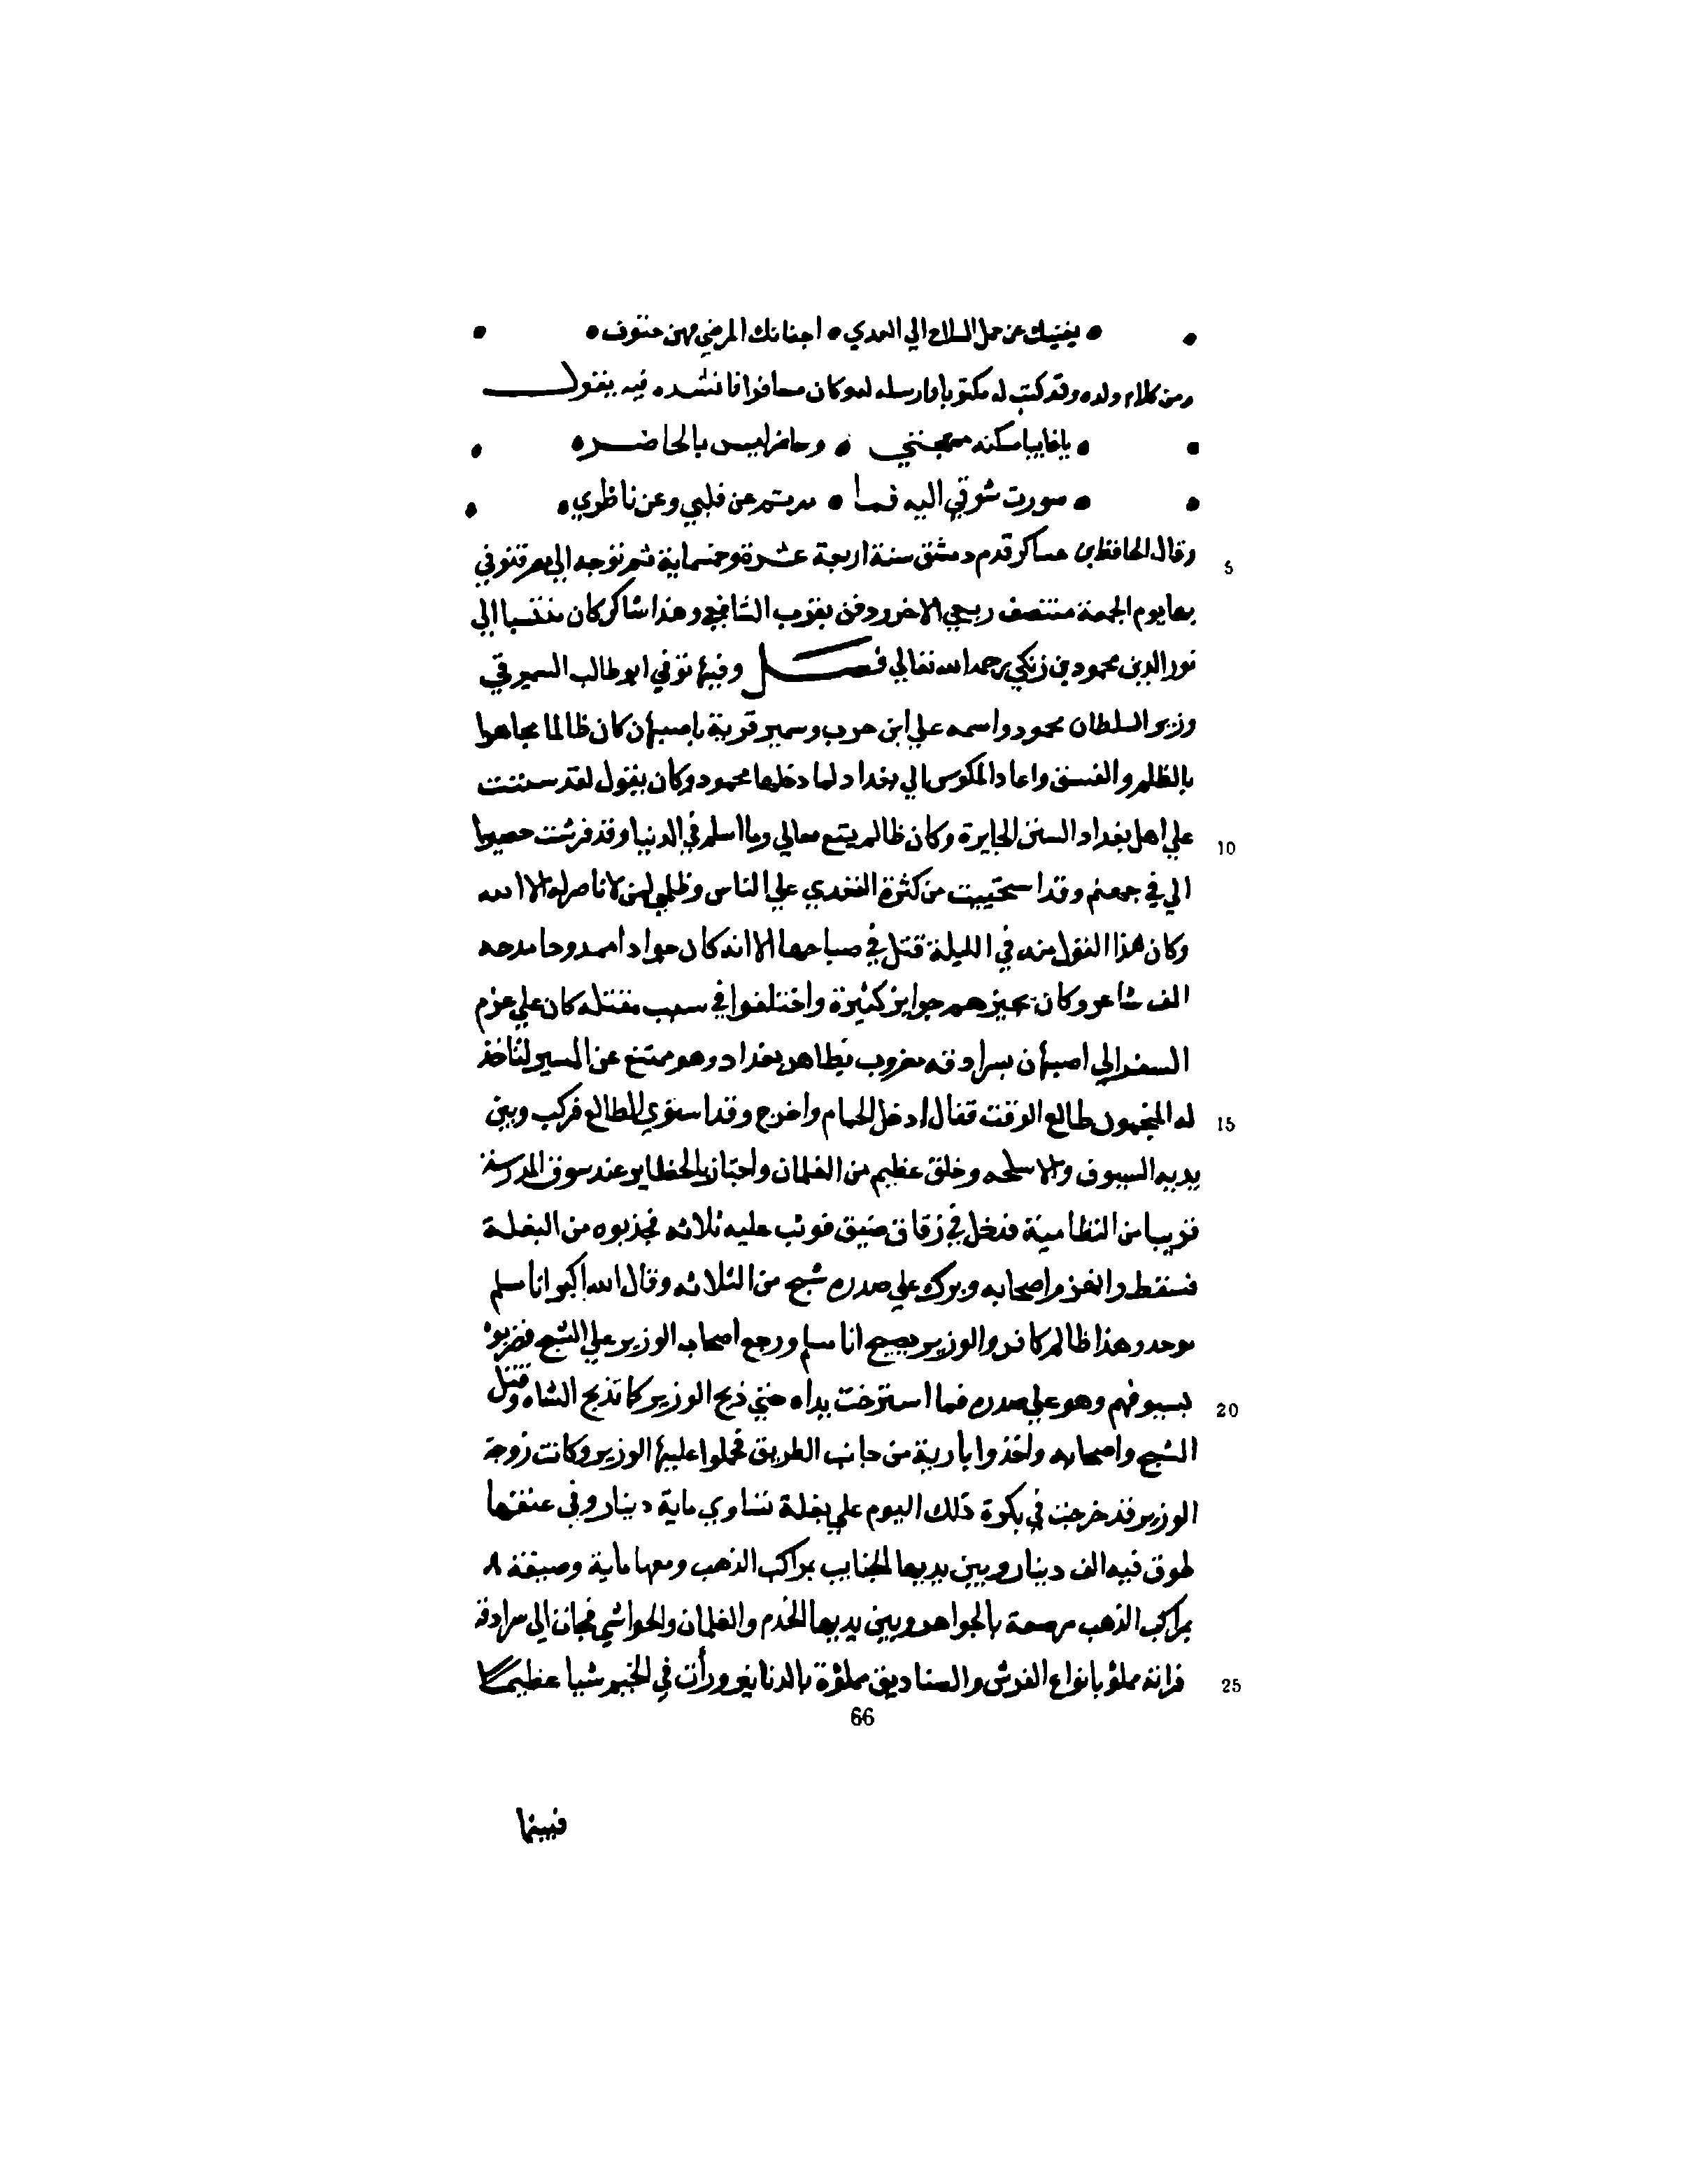 • يغنيك عن حمل السلاح الي العدي • اجفانك المرضي فهن حتوف •
ومن كلام ولده وقد كتب له مكتوبا وارسله له وكان مسافرا فانشده فيه يقول
• يا غايبا مسكنه مهجتي • وحاضرا ليس بالحاضره •
• صورت شوقي اليه فما • عن قلبي وعن ناظري •
وقال الحافظ بن عساكر قدم دمشق سنة اربعة عشرة وخمسماية ثم توجه الي مصر فتوفي 5
بها يوم الجمعة منتصف ربيع الاخر ودفن بقرب الشافعي وهذا شاكر كان منتسبا الي
نور الدين محمود بن زنكي رحمه الله تعالي فصل وفيها توفي ابو طالب السميرقي
وزير السلطان محمود واسمه علي ابن حرب وسمير قرية باصبهان كان ظالما مجاهرا
بالظلم والفسق واعاد المكوس الي بغداد لما دخلها محمود وكان يقول لقد سننت
علي اهل بغداد السنن الجايرة وكان ظالم يتبع معالي وما اسلم في الدنيا وقد فرشت حصيرا 10
الي في جهنم وقد استحييت من كثرة التعدي علي الناس وظلمي لمن لا ناصر له الا الله
وكان هذا القول منه في الليلة قتل في صباحها الا انه كان جوادا ممدوحا مدحه
الف شاعر وكان يجيزهم جوايز كثيرة واختلفوا في سبب مقتله كان علي عزم
السفر الي اصبهان سرادقه مضروب بظاهر بغداد وهو ممتنع عن المسير لتاخذ
له المنجمون طالع الوقت فقال ادخل الحمام واخرج وقد استوي الطالع فركب وبين 15
يديه السيوف والاسلحه وخلق عظيم من الغلمان واجتاز بالحظاير عند سوق المدرسة
قريبا من النظامية فدخل في زقاق ضيق فوثب عليه ثلاثه فجذبوه من البغلة
فسقط وانهزم اصحابه وبرك علي صدره شيخ من الثلاثه وقال الله اكبر انا مسلم
موحد وهذا ظالم كافر والوزير يصيح انا مسلم ورجع اصحاب الوزير علي الشيخ فضربوه
بسيوفهم وهو علي صدره فما استرخت يداه حتي ذبح الوزير كما تذبح الشاه وقتل 20
الشيخ واصحابه واخذوا بارية من جانب الطريق فحملوا عليها الوزير وكانت زوجة
الوزير قد خرجت في بكرة ذلك اليوم علي بغلة تساوي ماية دينار وفي عنقها
طوق فيه الف دينار وبين يديها الجنايب بمراكب الذهب ومعها ماية وصيفة ٨
بمراكب الذهب مرصعة بالجواهر وبين يديها الخدم والغلمان والحواشي فجات الي سرادقه
فراته مملو بانواع الفرش والصناديق مملؤة بالدنانير ورأت في الخيم شيا عظيما 25
66
فبينما